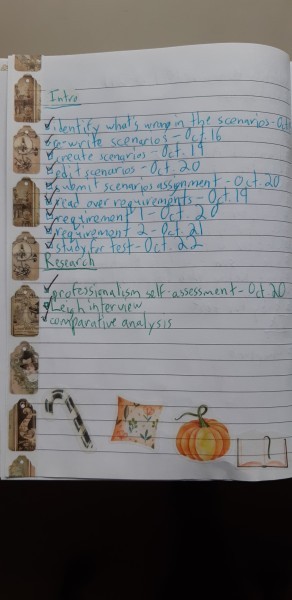 Intro
identify what's wrong in the scenarios - Oct
re-write scenarios - Oct. 16
create scenarios - Oct. 19
edit scenarios - Oct. 20
submit scenarios assignment - Oct. 20
read over requirements - Oct. 19
requirement 1 - Oct. 20
requirement 2 - Oct. 21
study for test - Oct. 22
Research
professionalism self-assessment - Oct 20
Leigh interview
comparative analysis